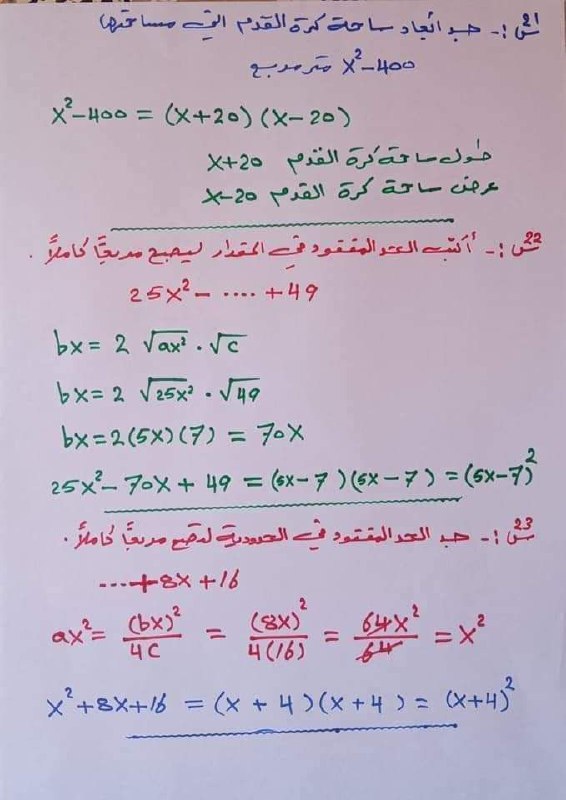 س21:- جد أبعاد ساحة كرة القدم التي مساحتها
x²-400 متر مربع
x²-400 = (x+20)(x-20)
طول ساحة كرة القدم x+20
عرض ساحة كرة القدم x-20
س22:- أكتب الحد المفقود في المقدار ليصبح مربعًا كاملاً.
25x² - .... + 49
bx = 2 √ax² · √c
bx = 2 √25x² · √49
bx = 2(5x)(7) = 70x
25x² - 70x + 49 = (5x-7)(5x-7) = (5x-7)²
س23:- جد الحد المفقود في الحدودية لتصبح مربعًا كاملاً.
.... + 8x + 16
ax² = (bx)²/4c = (8x)²/4(16) = 64x²/64 = x²
x² + 8x + 16 = (x + 4)(x + 4) = (x+4)²